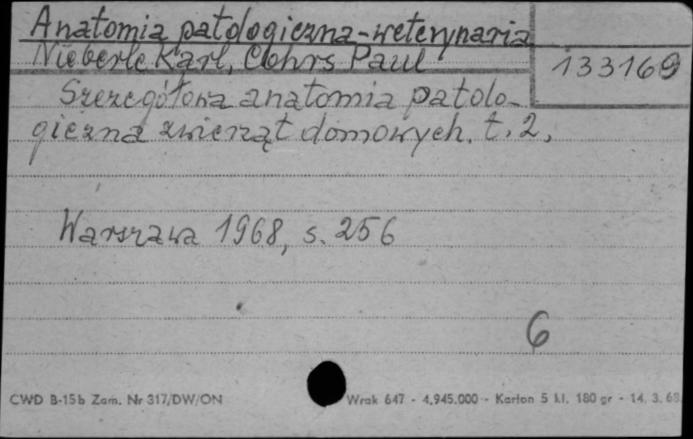 Anatomia patologiczna-weterynaria
Nieberle Karl, Cohrs Paul
133169
Szczegółowa anatomia patolo-
giczna zwierząt domowych. t. 2,
Warszawa 1968, s. 256
6
CWD B-15b Zam. Nr 317/DW/ON
Wrak 647 - 4,945.000 - Karton 5 kl. 180 gr - 14. 3. 68